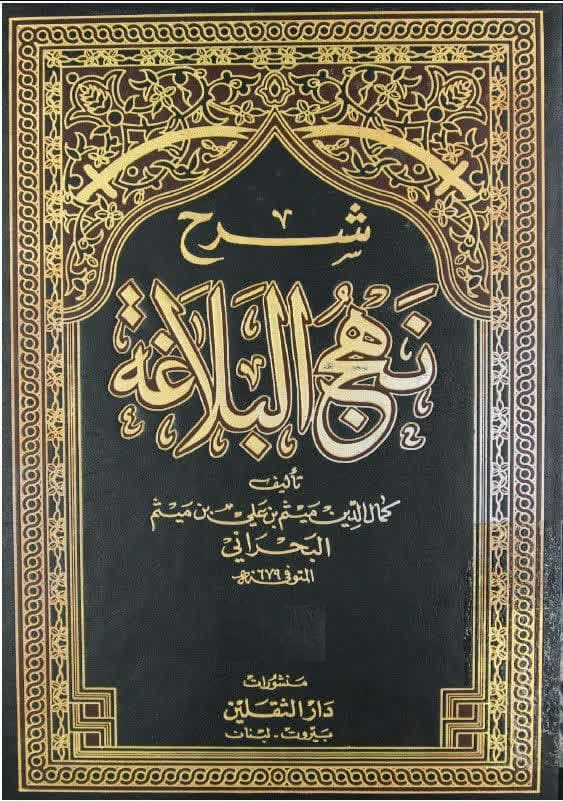 شرح
نَهْجُ البَلَاغَة
تأليف
كمال الدين ميثم بن علي بن ميثم
البحراني
المتوفى ٦٧٩ هـ
منشورات
دار الثقلين
بيروت - لبنان